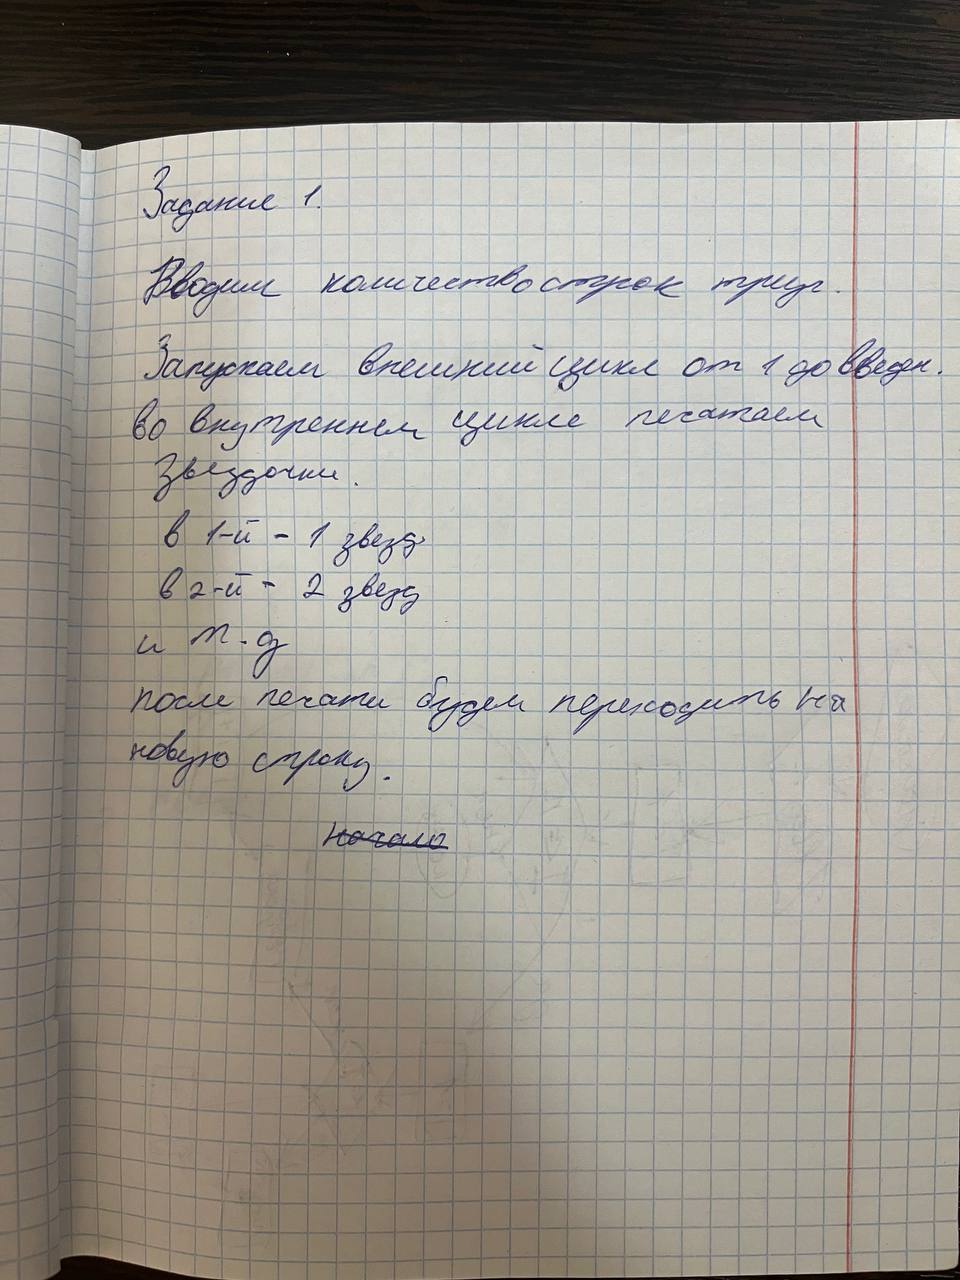 Задание 1.
Вводим количество строк треуг.
Запускаем внешний цикл от 1 до введен.
во внутреннем цикле печатаем
звездочки.
в 1-й - 1 звезд
в 2-й - 2 звезд
и т.д
после печати будем переходить на
новую строку.
начало